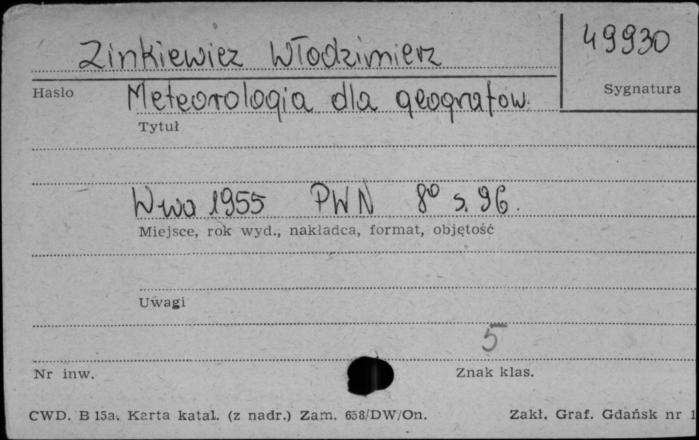 Zinkiewicz Włodzimierz
49930
Hasło
Sygnatura
Meteorologia dla geografów.
Tytuł
W-wa 1955 PWN 8° s. 96.
Miejsce, rok wyd., nakładca, format, objętość
Uwagi
5
Nr inw.
Znak klas.
CWD. B 15a. Karta katal. (z nadr.) Zam. 658/DW/On.
Zakł. Graf. Gdańsk nr 1